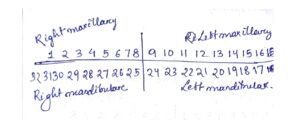 Right maxillary Left maxillary
1 2 3 4 5 6 7 8 9 10 11 12 13 14 15 16
32 31 30 29 28 27 26 25 24 23 22 21 20 19 18 17
Right mandibular Left mandibular.